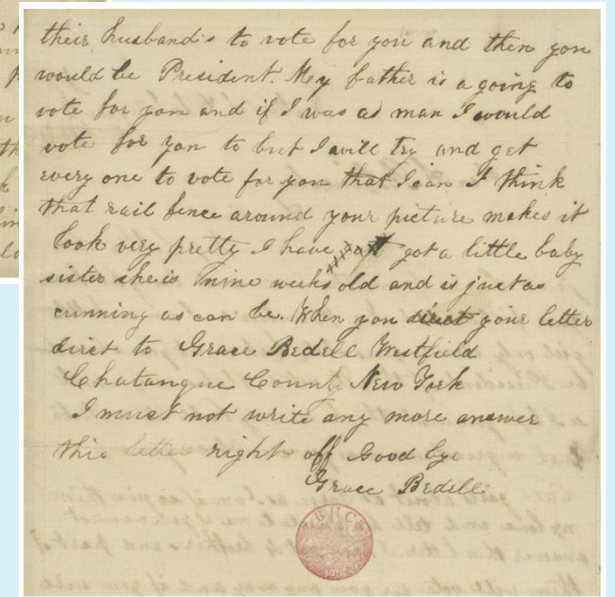 their husband's to vote for you and then you
would be President. My father is a going to
vote for you and if I was as man I would
vote for you to but I will try and get
every one to vote for you that I can I think
that rail fence around your picture makes it
look very pretty I have got a little baby
sister she is nine weeks old and is just as
cunning as can be. When you direct your letter
direct to Grace Bedell Westfield
Chatauque County New York
I must not write any more answer
this letter right off Good bye
Grace Bedell